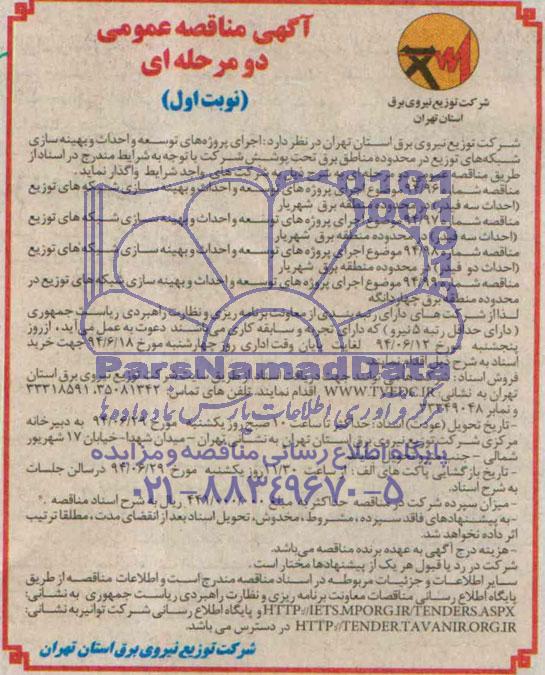 آگهی مناقصه عمومی
دو مرحله ای
(نوبت اول)
شرکت توزیع نیروی برق
استان تهران
شرکت توزیع نیروی برق استان تهران در نظر دارد: اجرای پروژه های توسعه و احداث و بهینه سازی
شبکه های توزیع در محدوده مناطق برق تحت پوشش شرکت با توجه به شرایط مندرج در اسناد از
طریق مناقصه عمومی دو مرحله ای به شرکت های واجد شرایط واگذار نماید.
مناقصه شماره موضوع اجرای پروژه های توسعه و احداث و بهینه سازی شبکه های توزیع
(احداث سه فیدر) در محدوده منطقه برق شهریار
مناقصه شماره موضوع اجرای پروژه های توسعه و احداث و بهینه سازی شبکه های توزیع
(احداث سه فیدر) در محدوده منطقه برق شهریار
مناقصه شماره موضوع اجرای پروژه های توسعه و احداث و بهینه سازی شبکه های توزیع
(احداث دو فیدر) در محدوده منطقه برق شهریار
مناقصه شماره موضوع اجرای پروژه های توسعه و احداث و بهینه سازی شبکه های توزیع در
محدوده منطقه برق چهاردانگه
لذا از شرکت های دارای رتبه بندی از معاونت برنامه ریزی و نظارت راهبردی ریاست جمهوری
(دارای حداقل رتبه ۵ نیرو) که دارای تجربه و سابقه کاری می باشند دعوت به عمل می آید، از روز
پنجشنبه مورخ ۹۴/۰۶/۱۲ لغایت پایان وقت اداری روز چهارشنبه مورخ ۹۴/۶/۱۸ جهت خرید
اسناد به شرح ذیل اقدام نمایند.
فروش اسناد: شرکت توزیع نیروی برق استان
تهران به نشانی: WWW.TVEDC.IR اقدام نمایند. تلفن های تماس: ۳۵۰۸۱۳۴۳، ۳۳۳۱۸۵۹۱
و نمابر ۳۳۳۴۹۰۴۸
-تاریخ تحویل (عودت) اسناد: حداکثر تا ساعت ۱۰ صبح روز یکشنبه مورخ ۹۴/۰۶/۲۹ به دبیرخانه
مرکزی شرکت توزیع نیروی برق استان تهران به نشانی تهران - میدان شهدا- خیابان ۱۷ شهریور
شمالی -
-تاریخ بازگشایی پاکت های الف: از ساعت روز یکشنبه مورخ ۹۴/۰۶/۲۹ در سالن جلسات
به شرح اسناد.
-میزان سپرده شرکت در مناقصه حداکثر به مبلغ ریال به شرح اسناد مناقصه.
-به پیشنهادهای فاقد سپرده، مشروط، مخدوش، تحویل اسناد بعد از انقضای مدت، مطلقا ترتیب
اثر داده نخواهد شد.
-هزینه درج آگهی به عهده برنده مناقصه می باشد.
شرکت در رد یا قبول هر یک از پیشنهادها مختار است.
سایر اطلاعات و جزئیات مربوطه در اسناد مناقصه مندرج است و اطلاعات مناقصه از طریق
پایگاه اطلاع رسانی مناقصات معاونت برنامه ریزی و نظارت راهبردی ریاست جمهوری به نشانی:
HTTP://IETS.MPORG.IR/TENDERS.ASPX و پایگاه اطلاع رسانی شرکت توانیر به نشانی:
HTTP://TENDER.TAVANIR.ORG.IR در دسترس می باشد.
شرکت توزیع نیروی برق استان تهران
ParsNamadData
گردآوری اطلاعات پارس نماد داده ها
پایگاه اطلاع رسانی مناقصه و مزایده
۰۲۱-۸۸۳۴۹۶۷۰-۵